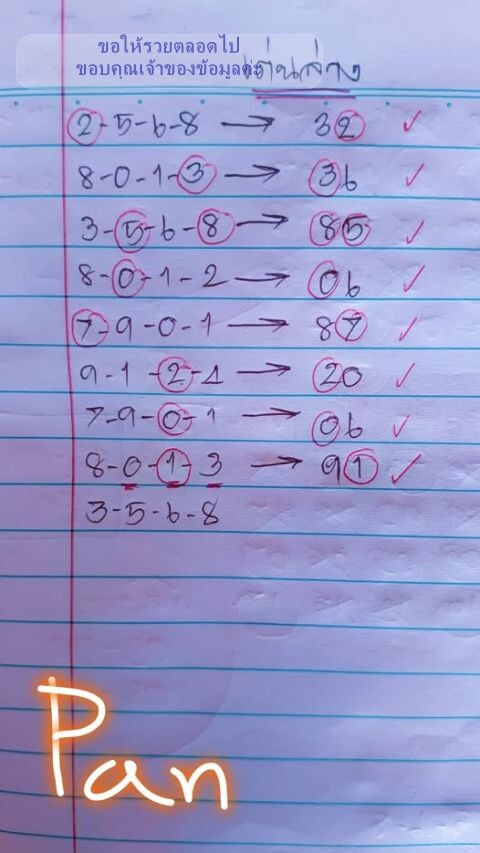 ขอให้รวยตลอดไป
ขอบคุณเจ้าของข้อมูลค่ะ
เด่นล่าง
2-5-6-8 → 32 ✓
8-0-1-3 → 36 ✓
3-5-6-8 → 85 ✓
8-0-1-2 → 06 ✓
7-9-0-1 → 87 ✓
9-1-2-4 → 20 ✓
7-9-0-1 → 06 ✓
8-0-1-3 → 91 ✓
3-5-6-8
Pan